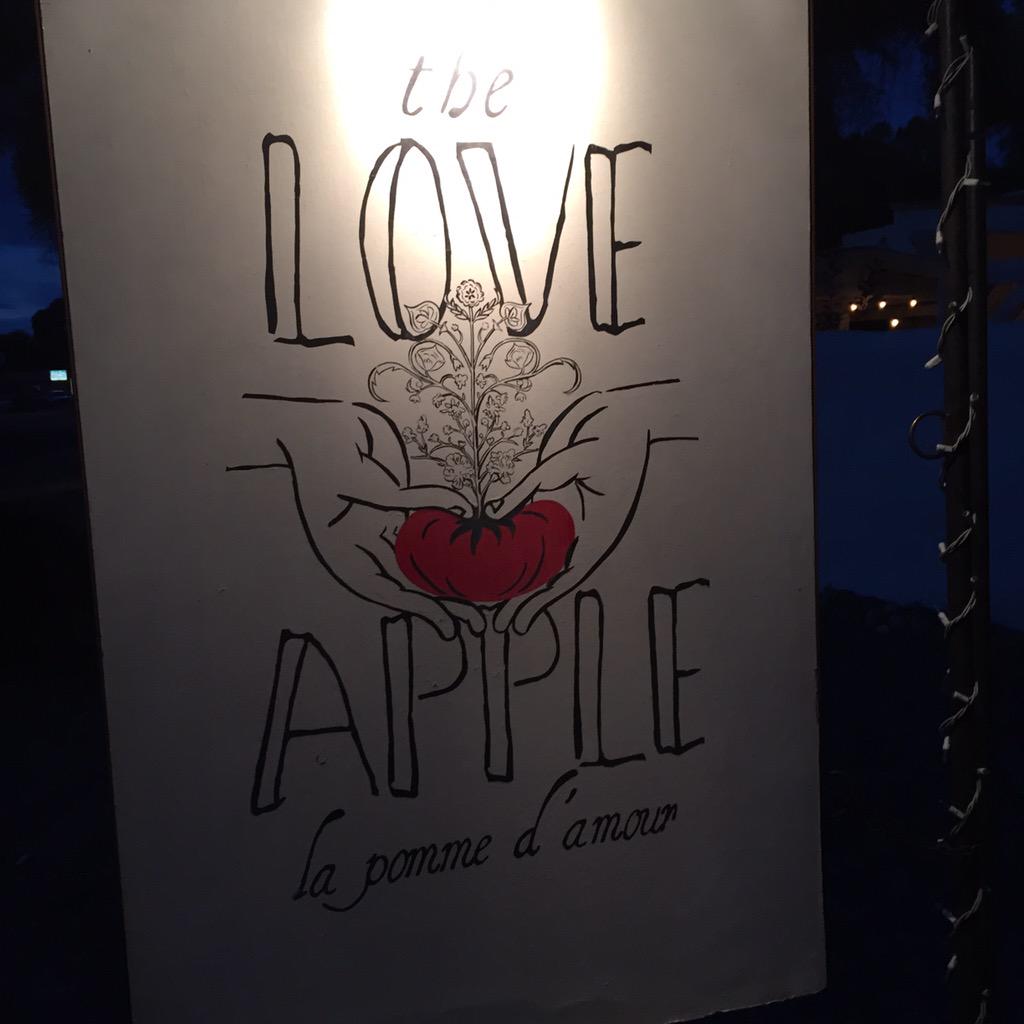 the
LOVE
APPLE
la pomme d'amour